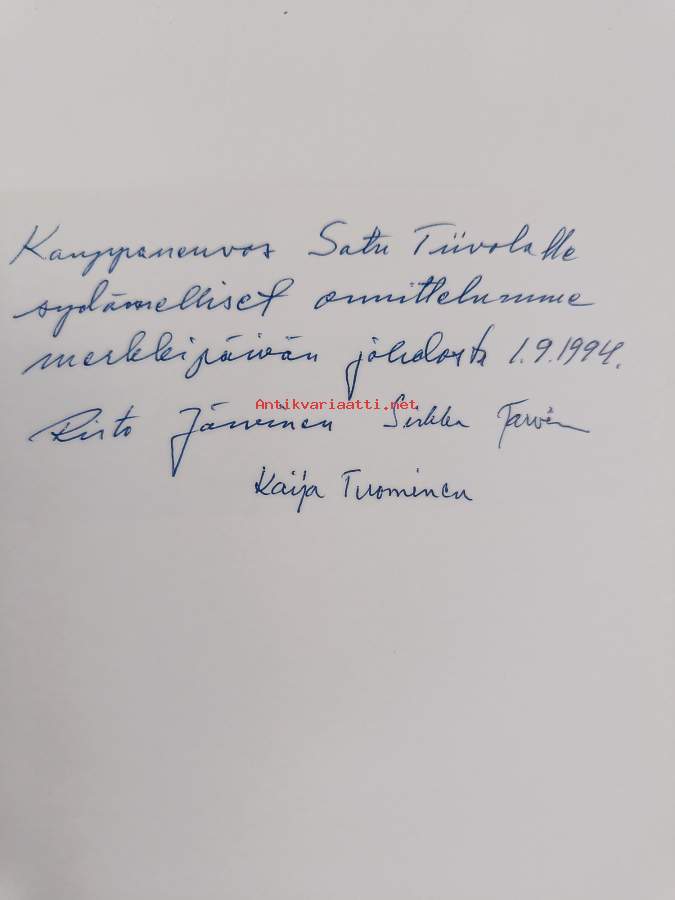 Kauppaneuvos Satu Tiivolalle
sydämelliset onnittelumme
merkkipäivän johdosta 1.9.1994.
Antikvariaatti.net
Risto Järvinen Sirkka
Kaija Tuominen